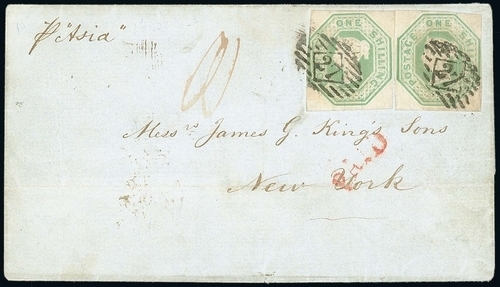 p "Asia"
ONE SHILLING
POSTAGE ONE SHILLING
Messrs James G. King's Sons
PAID
New York